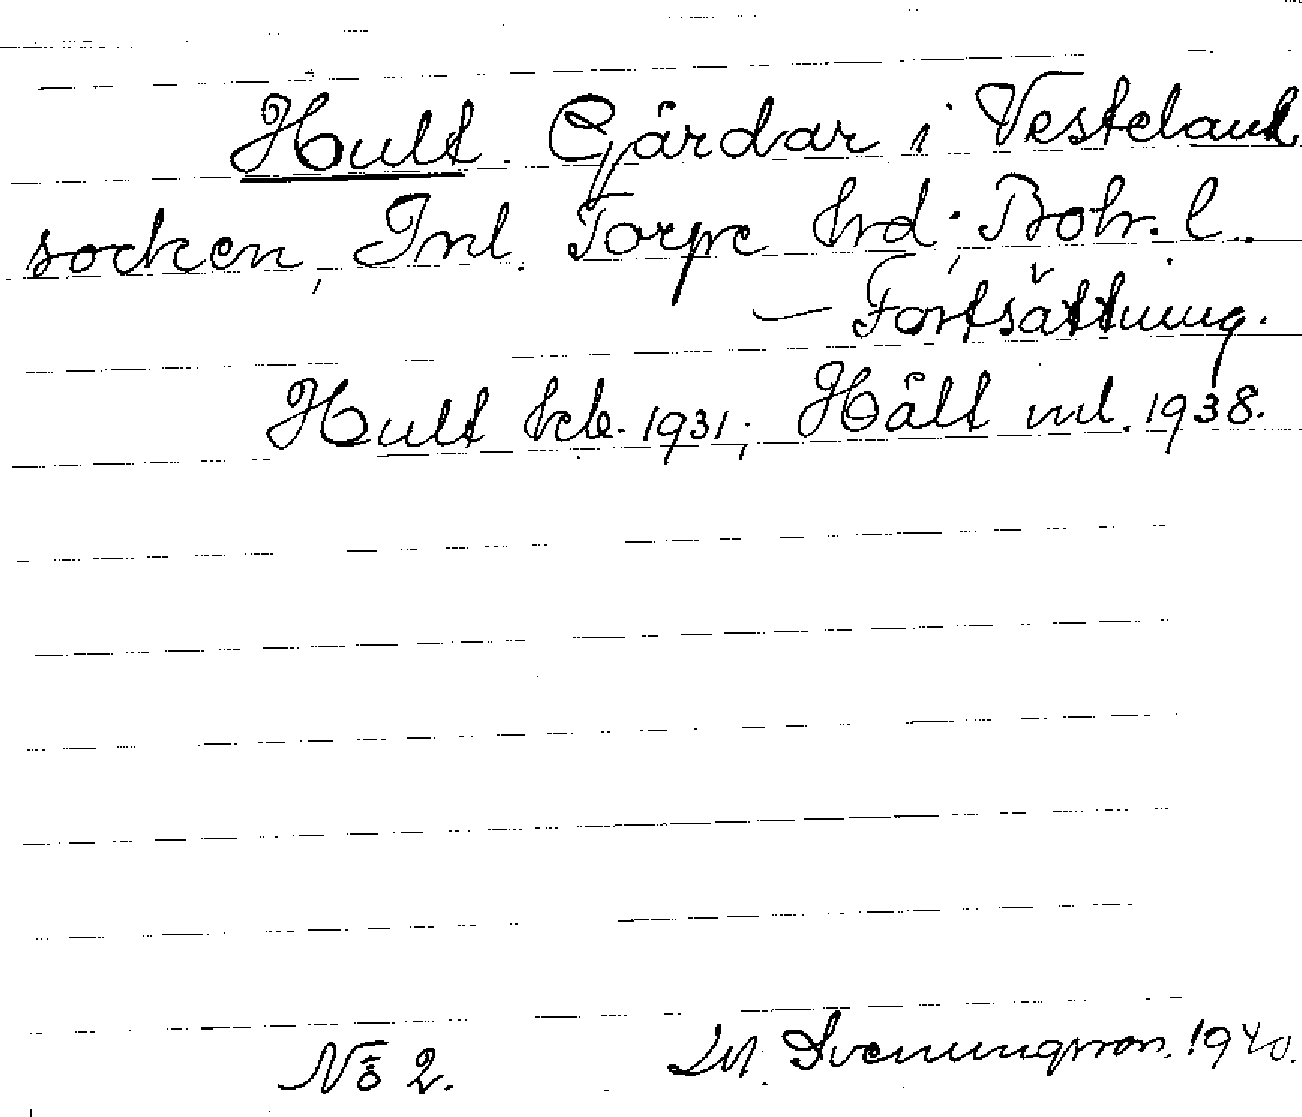 Hult. Gårdar i Vesteland
socken, Inl. Torpe hrd; Boh. l.
— Fortsättning.
Hult tel. 1931; Hält ml. 1938.
No 2. Svenungsson. 1940.